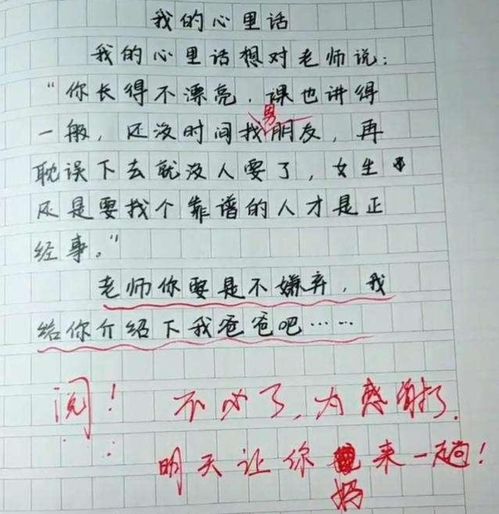 我的心里话
我的心里话想对老师说：
“你长得不漂亮，课也讲得
一般，还没时间找男朋友，再
耽误下去就没人要了，女生
还是要找个靠谱的人才是正
经事。”
老师你要是不嫌弃，我
给你介绍下我爸爸吧……
阅！不必了，为感情
明天让你妈来一趟！